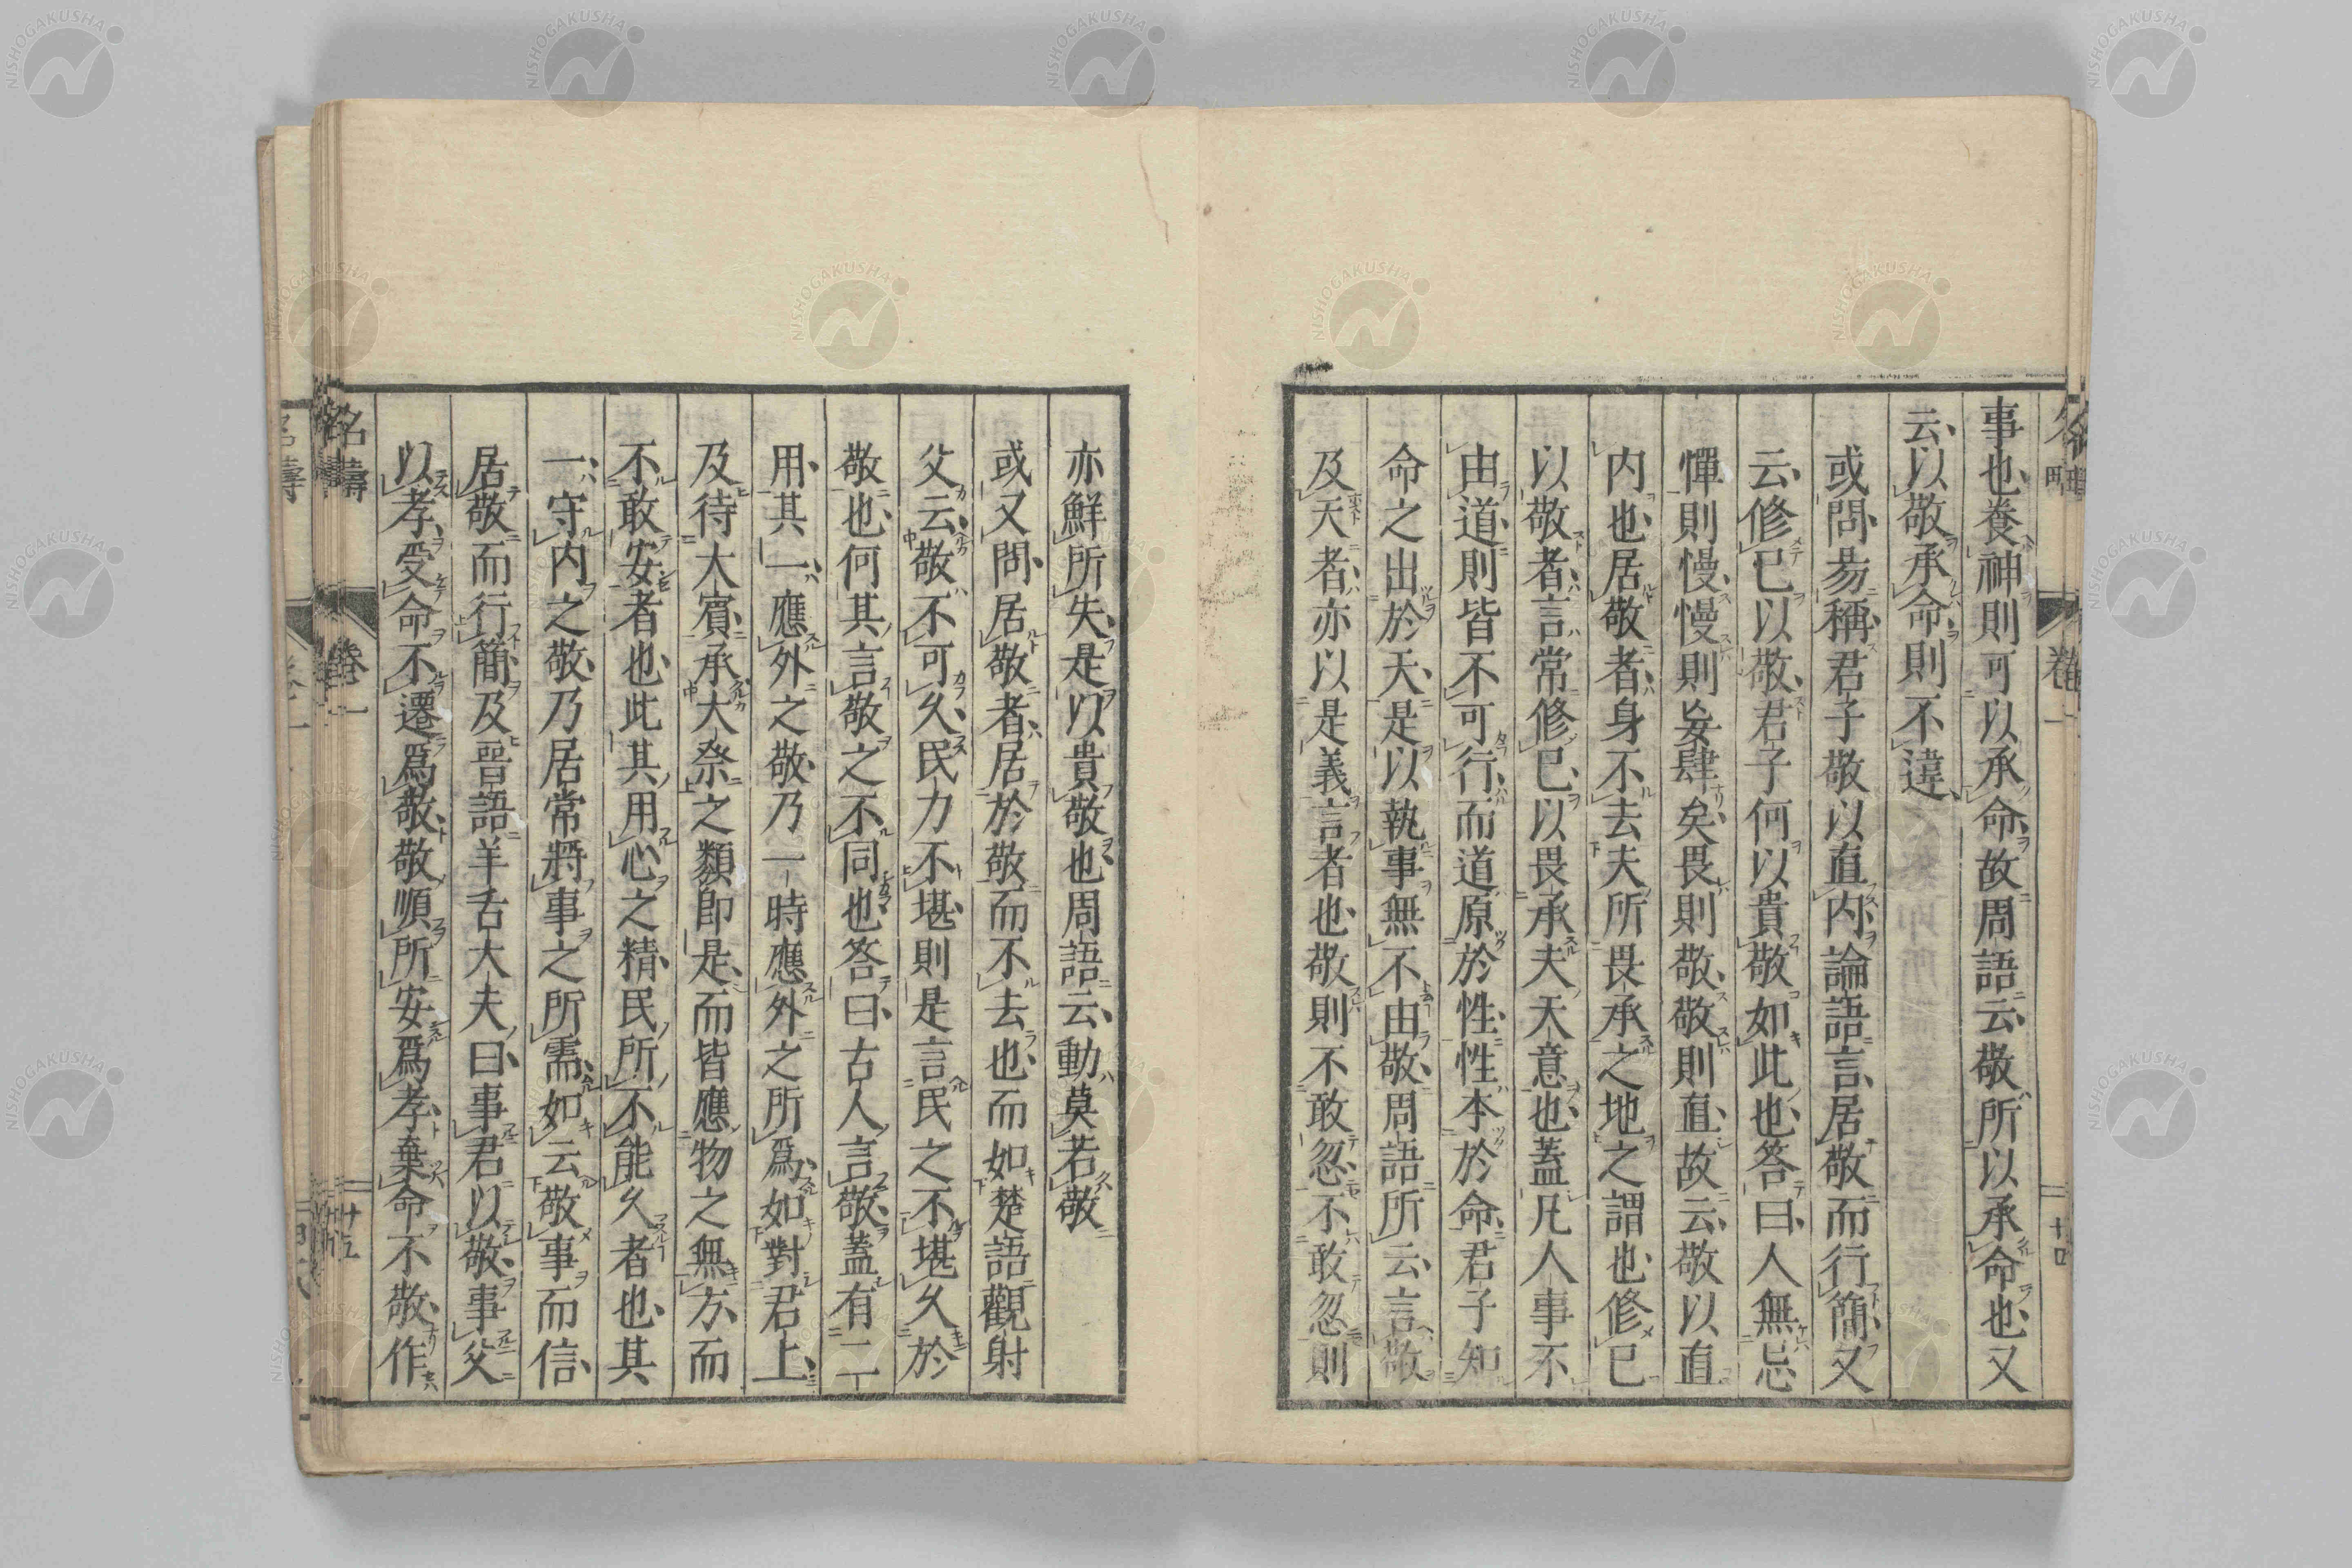 事也養神則可以承命故周語云敬所以承命也又
云以敬承命則不違
或問易稱君子敬以直內論語言居敬而行簡又
云修已以敬君子何以貴敬如此也答曰人無忌
憚則慢慢則妄肆矣畏則敬敬則直故云敬以直
内也居敬者身不去夫所畏承之地之謂也修已
以敬者言常修已以畏承夫天意也蓋凡人事不
由道則皆不可行而道原於性性本於命君子知
命之出於天是以執事無不由敬周語所云言敬
及天者亦以是義言者也敬則不敢忽不敢忽則
亦鮮所失是以貴敬也周語云動莫若敬
或又問居敬者居於敬而不去也而如楚語觀射
父云敬不可久民力不堪則是言民之不堪久於
敬也何其言敬之不同也答曰古人言敬蓋有二
用其一應外之敬乃一時應外之所爲如對君上
及待大賓承大祭之類即是而皆應物之無方而
不敢安者也此其用心之精民所不能久者也其
一守内之敬乃居常將事之所需如云敬事而信
居敬而行簡及晉語羊舌大夫曰事君以敬事父
以孝受命不遷爲敬敬順所安爲孝棄命不敬作
名疇 卷一
NISHOGAKUSHA